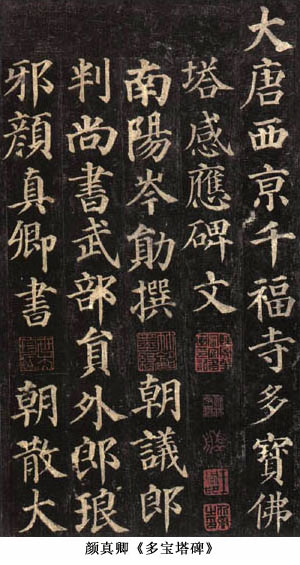 大唐西亰千福寺多寶佛
塔感應碑文
南陽岑勛撰 朝議郎
判尚書武部貟外郎琅
邪顏真卿書 朝散大
颜真卿《多宝塔碑》